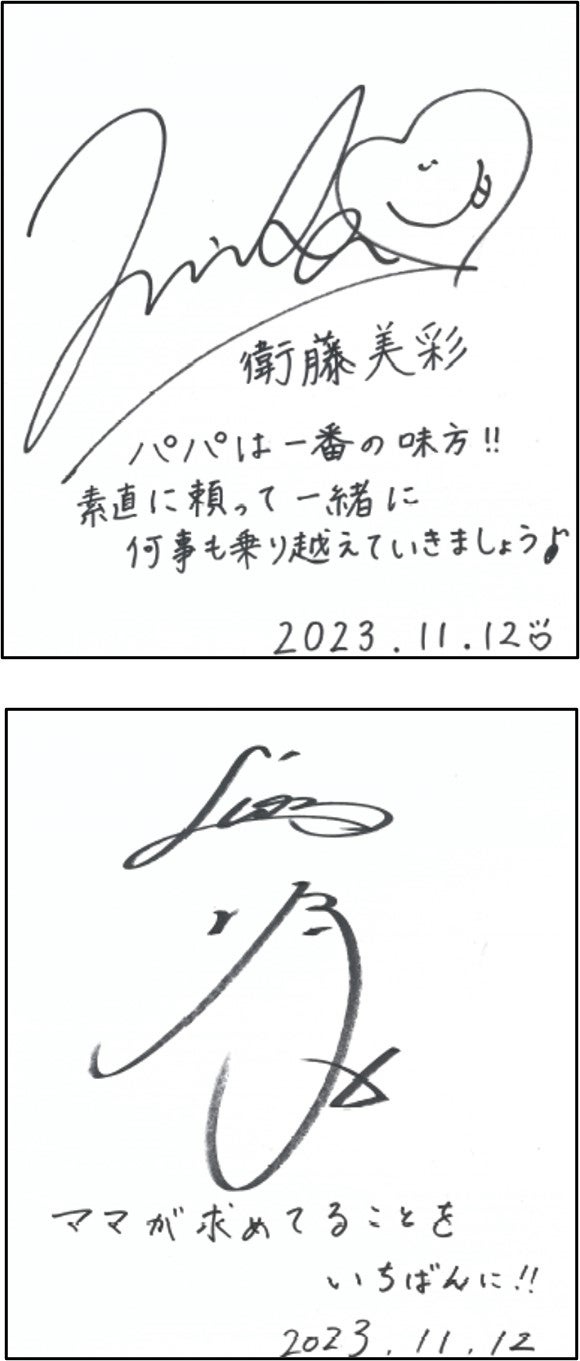 衛藤美彩
パパは一番の味方!!
素直に頼って一緒に
何事も乗り越えていきましょう♪
2023.11.12
ママが求めてることを
いちばんに!!
2023.11.12